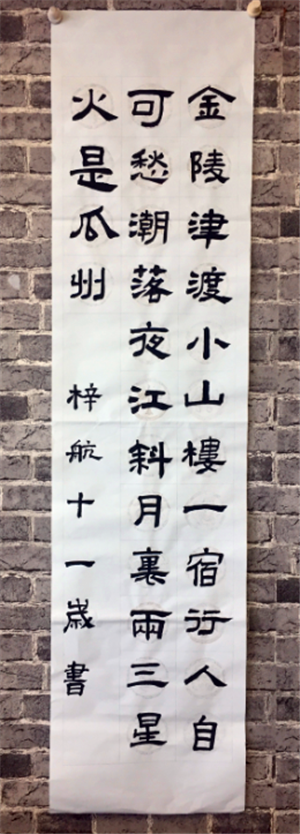 金陵津渡小山樓一宿行人自
可愁潮落夜江斜月裏兩三星
火是瓜州
梓航十一歲書